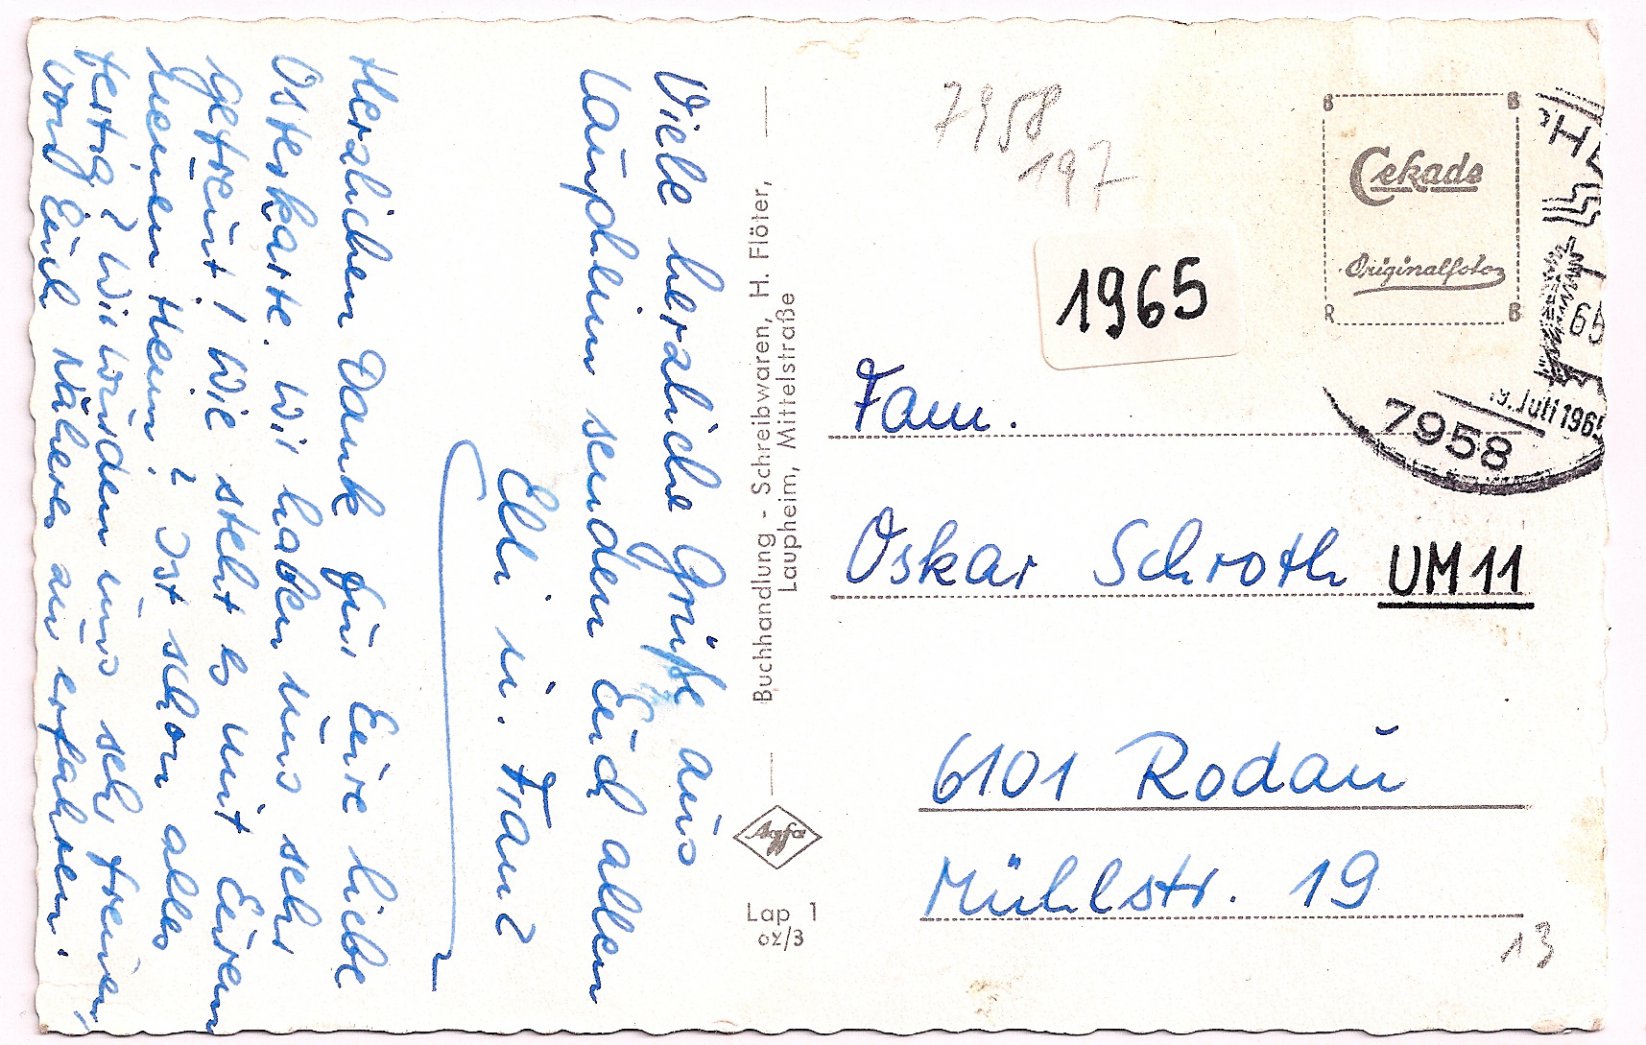 Viele herzliche Grüße aus
Laupheim senden Euch allen
Elli u. Franz
Herzlichen Dank für Eure liebe
Osterkarte. Wir haben uns sehr
gefreut! Wie steht es mit Eurem
neuen Heim? Ist schon alles
fertig? Wir würden uns sehr freuen,
von Euch Näheres zu erfahren.
Buchhandlung - Schreibwaren, H. Flöter,
Laupheim, Mittelstraße
Agfa
Lap 1
oz/3
7958
197
1965
B B
Cekade
Originalfoto
R B
65
19. Juli 1965
7958
Fam.
Oskar Schroth
UM11
6101 Rodau
Mühlstr. 19
13